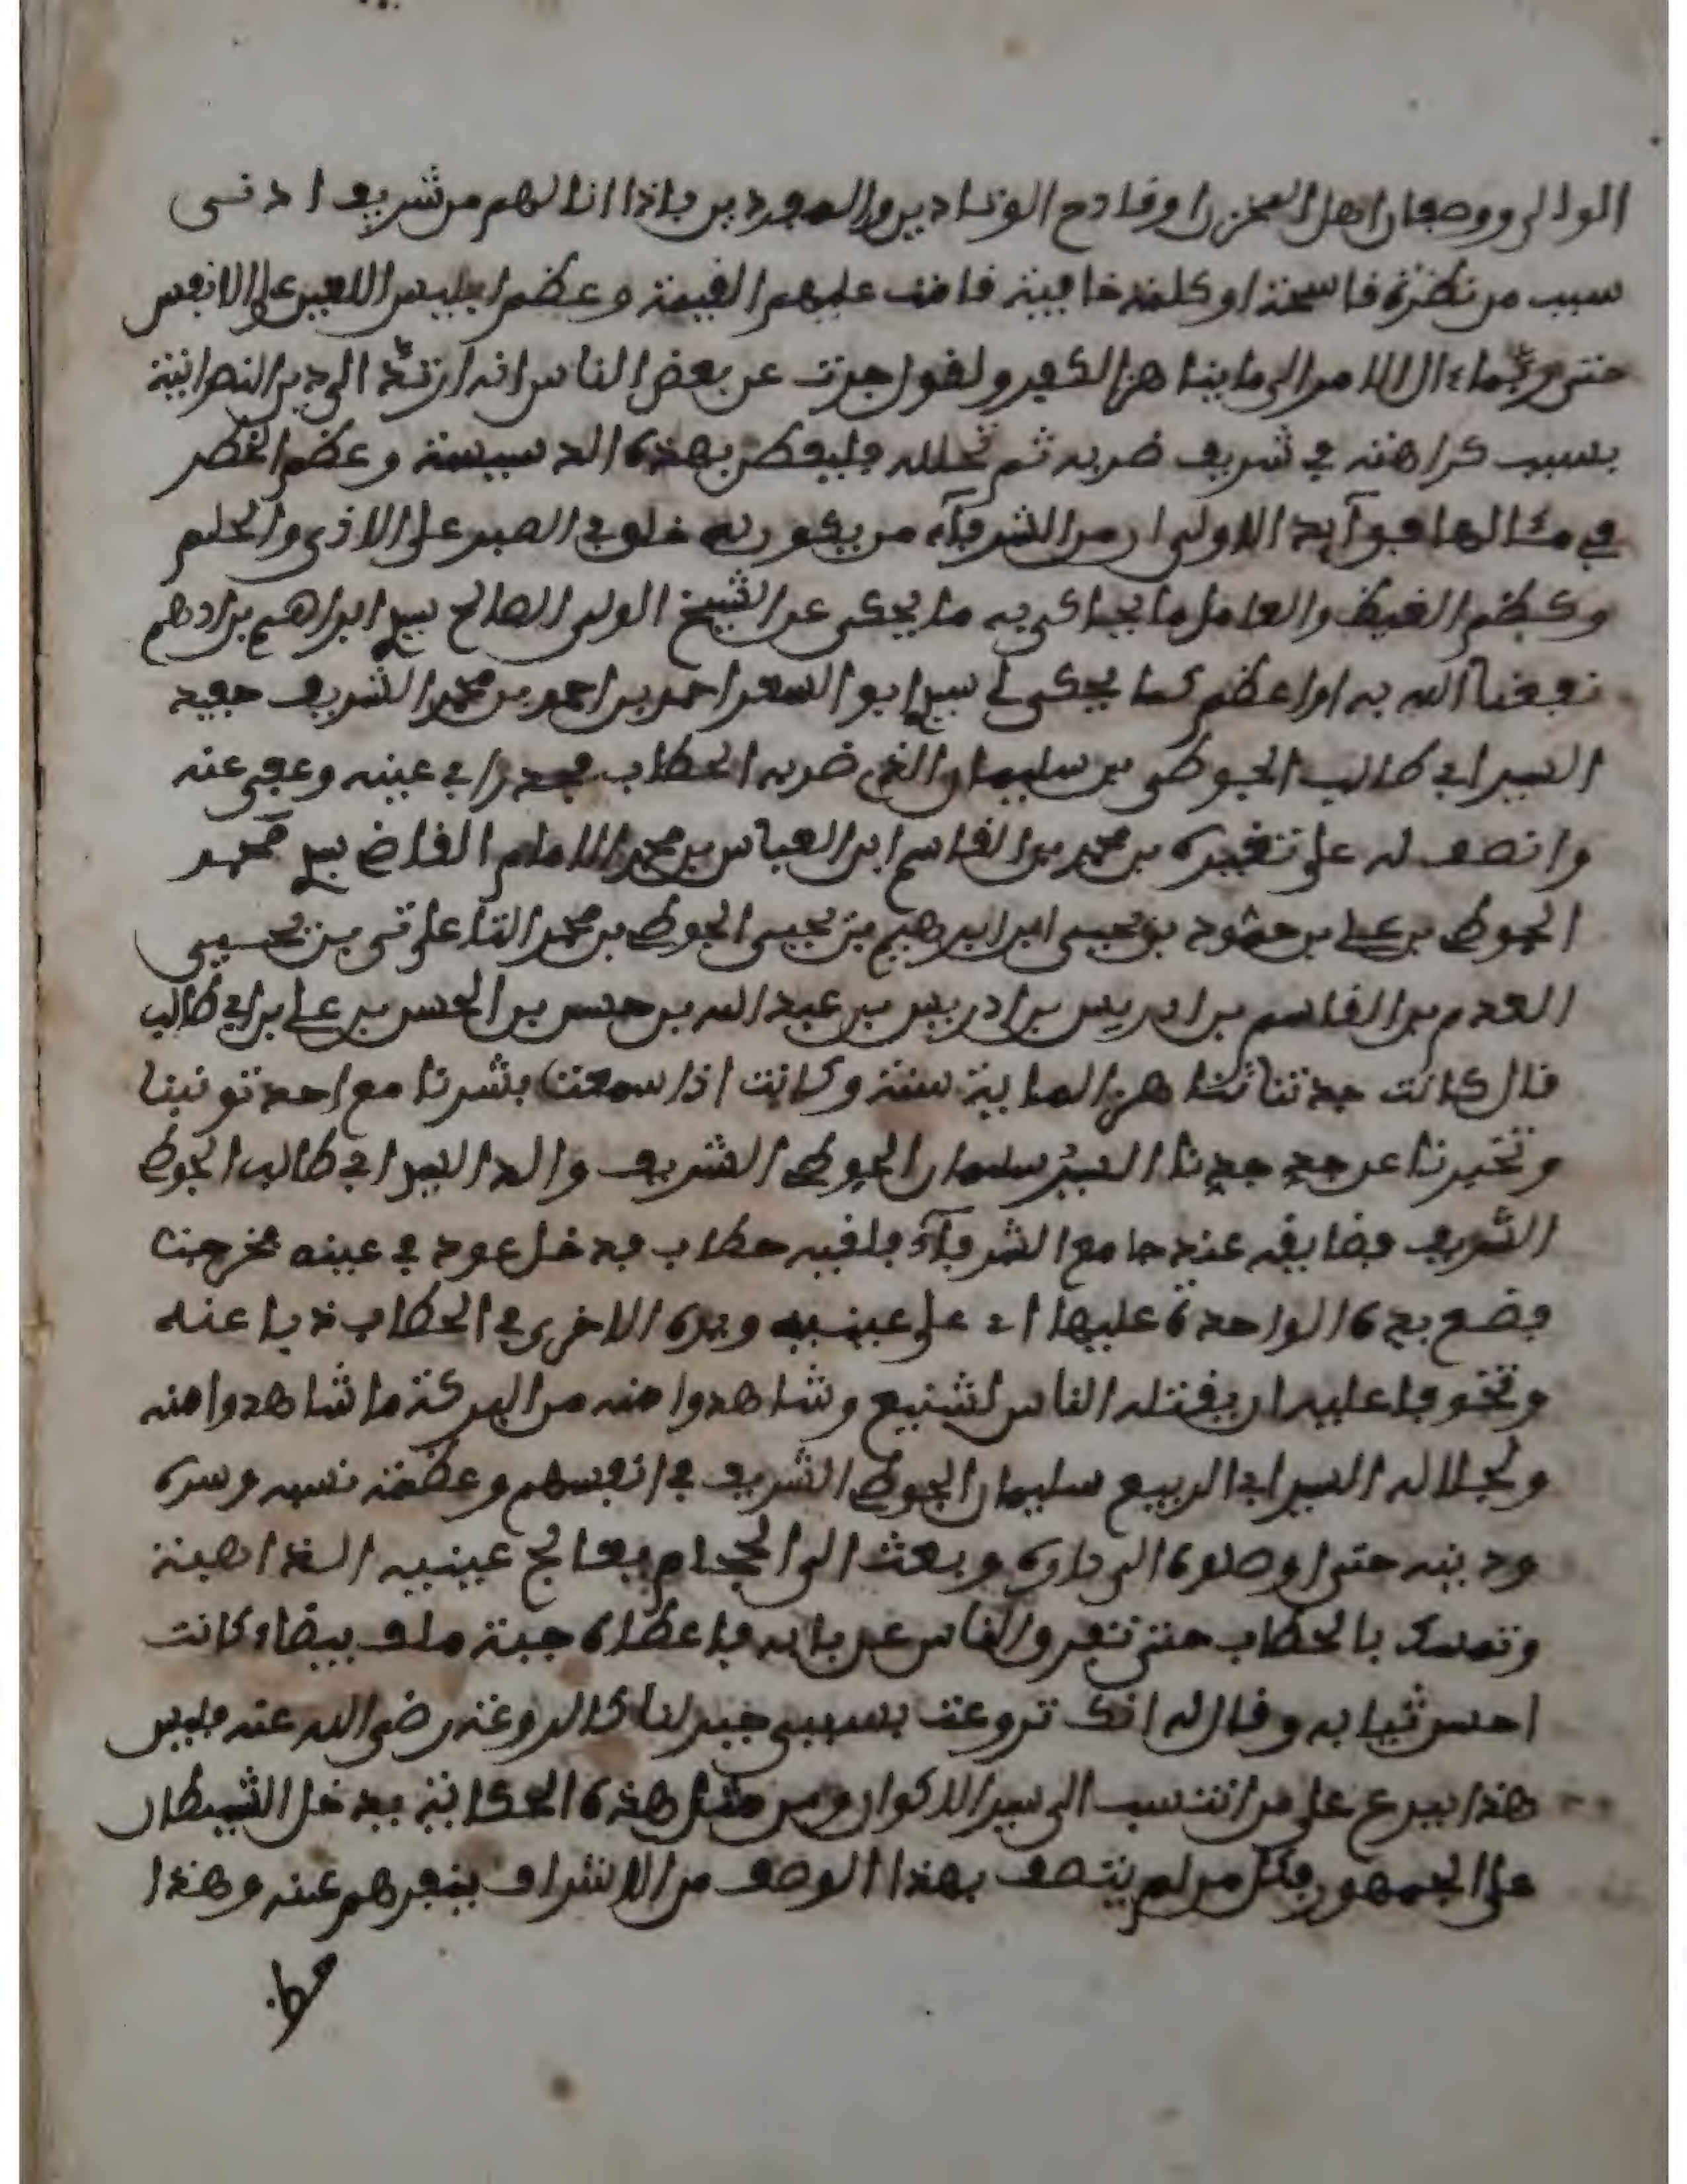 الوالي ووصفان اهل المخزن او قادح الوقادين والمبعدين فاذا انالهم من شريف ادنى
سبب من نظرة فاسحة او كلمة خافية قامت عليهم القيمة وعظم ابليس اللعين على الانفس
حتى ربما ءال الامر الى ما يناهز الكفر ولقد اجزت عن بعض الناس انه ارتد الى دين النصرانية
بسبب كراهته في شريف ضربه ثم تحلله فليفطن بهذه الدسيسة وعظم الخطر
في مثالها فبوآيد الاولى ان من الشرفآء من يكون له خلق في الصبر على الاذى والحلم
وكظم الغيظ والعامل ما يحاكى به ما يحكى عن الشيخ الولي الصالح سيدي ابراهيم بن ادهم
نفعنا الله به او اعظم كما يحكى لي سيدي ابو السعد احمد بن احمد بن محمد الشريف حفيد
السيد ابي طالب الجوطي بن سليمان الذي ضربه الحطاب فجدرا في عينه وعفى عنه
وانصف له على تغييره بن محمد بن القاسم ابن العباس بن محمد الامام القاضي سيدي محمد
الجوطي بن علي بن حمود بن يحيى ابن ابراهيم بن يحيى الجوطي بن محمد القاعلي تي بن يحيى
العدم بن القاسم بن ادريس بن ادريس بن عبد الله بن حسن بن الحسن بن علي بن ابي طالب
قال كانت جدتنا تناهز الماية سنة وكانت اذا سمعت بشرنا مع احد تونبنا
وتخبرنا عن جد جدنا السيد سليمان الجوطي الشريف والد السيد ابي طالب الجوطي
الشريف فضايفه عند جامع الشرفآء فلقيه حطاب فدخل عود في عينه فخرجت
فضع يده الواحدة عليها اي على عينيه ويده الاخرى في الحطاب ذبا عنه
وتخوفا عليه ان يقتله الناس لشنيع وشاهدوا منه من البركة ما شاهدوا منه
ولجلاله السيد ابي الربيع سليمان الجوطي الشريف في انفسهم وعظمة نسبه وسره
ودينه حتى اوصلوه الى داره وبعث الى الحجام يعالج عينيه الذاهبة
وتمسك بالحطاب حتى تفرق الناس عن بابه فاعطاه جبة ملف بيضا وكانت
احسن ثيابه وقال له انك تروعت بسببي خبد لنا كالروعة رضي الله عنه فليس
هذا ببدع على من انتسب الى سيد الاكوان ومن مثل هذه الحكاية يدخل الشيطان
على الجمهور فكل من لم يتصف بهذا الوصف من الاشراف ينفرهم عنه وهذا